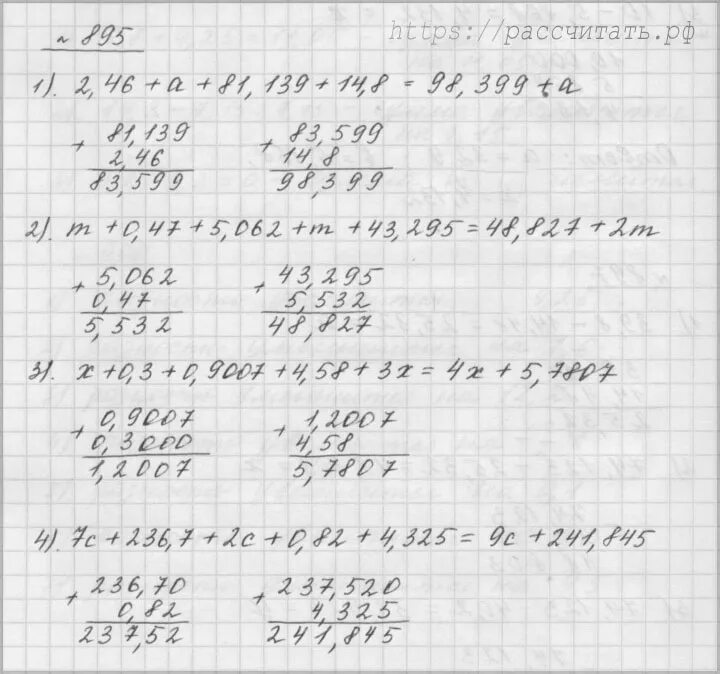 https://рассчитать.рф
№ 895
1). 2,46 + a + 81,139 + 14,8 = 98,399 + a
+ 81,139
2,46
83,599
+ 83,599
14,8
98,399
2). m + 0,47 + 5,062 + m + 43,295 = 48,827 + 2m
+ 5,062
0,47
5,532
+ 43,295
5,532
48,827
3). x + 0,3 + 0,9007 + 4,58 + 3x = 4x + 5,7807
+ 0,9007
0,3000
1,2007
+ 1,2007
4,58
5,7807
4). 7c + 236,7 + 2c + 0,82 + 4,325 = 9c + 241,845
+ 236,70
0,82
237,52
+ 237,520
4,325
241,845